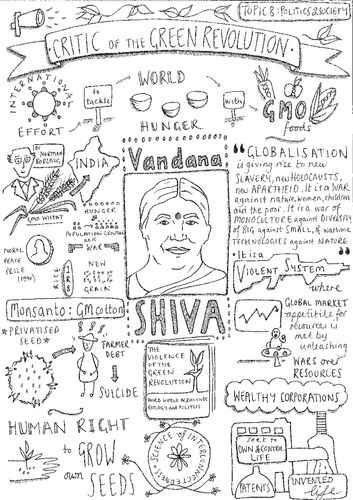 TOPIC 8: POLITICS & SOCIETY
CRITIC OF THE GREEN REVOLUTION
INTERNATIONAL
EFFORT
to
tackle
WORLD
HUNGER
with
GMO
foods
DR NORMAN
BORLAUG
GMO WHEAT
INDIA
HUNGER
POPULATION GROWTH
WAR
NOBEL
PEACE
PRIZE
1970
RICE
IR8
NEW
GRAIN
Vandana
SHIVA
"GLOBALISATION
is giving rise to new
SLAVERY, new HOLOCAUSTS,
new APARTHEID. It is a WAR
against nature, women, children
and the poor. It is a war of
MONOCULTURE against DIVERSITY
of BIG against SMALL, of wartime
TECHNOLOGIES against NATURE
It is a
VIOLENT SYSTEM
where
GLOBAL MARKET
appetite for
resources is
met by
unleashing
WARS over
RESOURCES
Monsanto: GM cotton
*PRIVATISED
SEED*
FARMER
DEBT
SUICIDE
HUMAN RIGHT
to GROW
own SEEDS
THE
VIOLENCE OF
THE GREEN
REVOLUTION
THIRD WORLD AGRICULTURE
ECOLOGY AND POLITICS
SCIENCE OF INTERCONNECTEDNESS
WEALTHY CORPORATIONS
seek to
OWN & CONTROL
LIFE
PATENTS
INVENTED
life